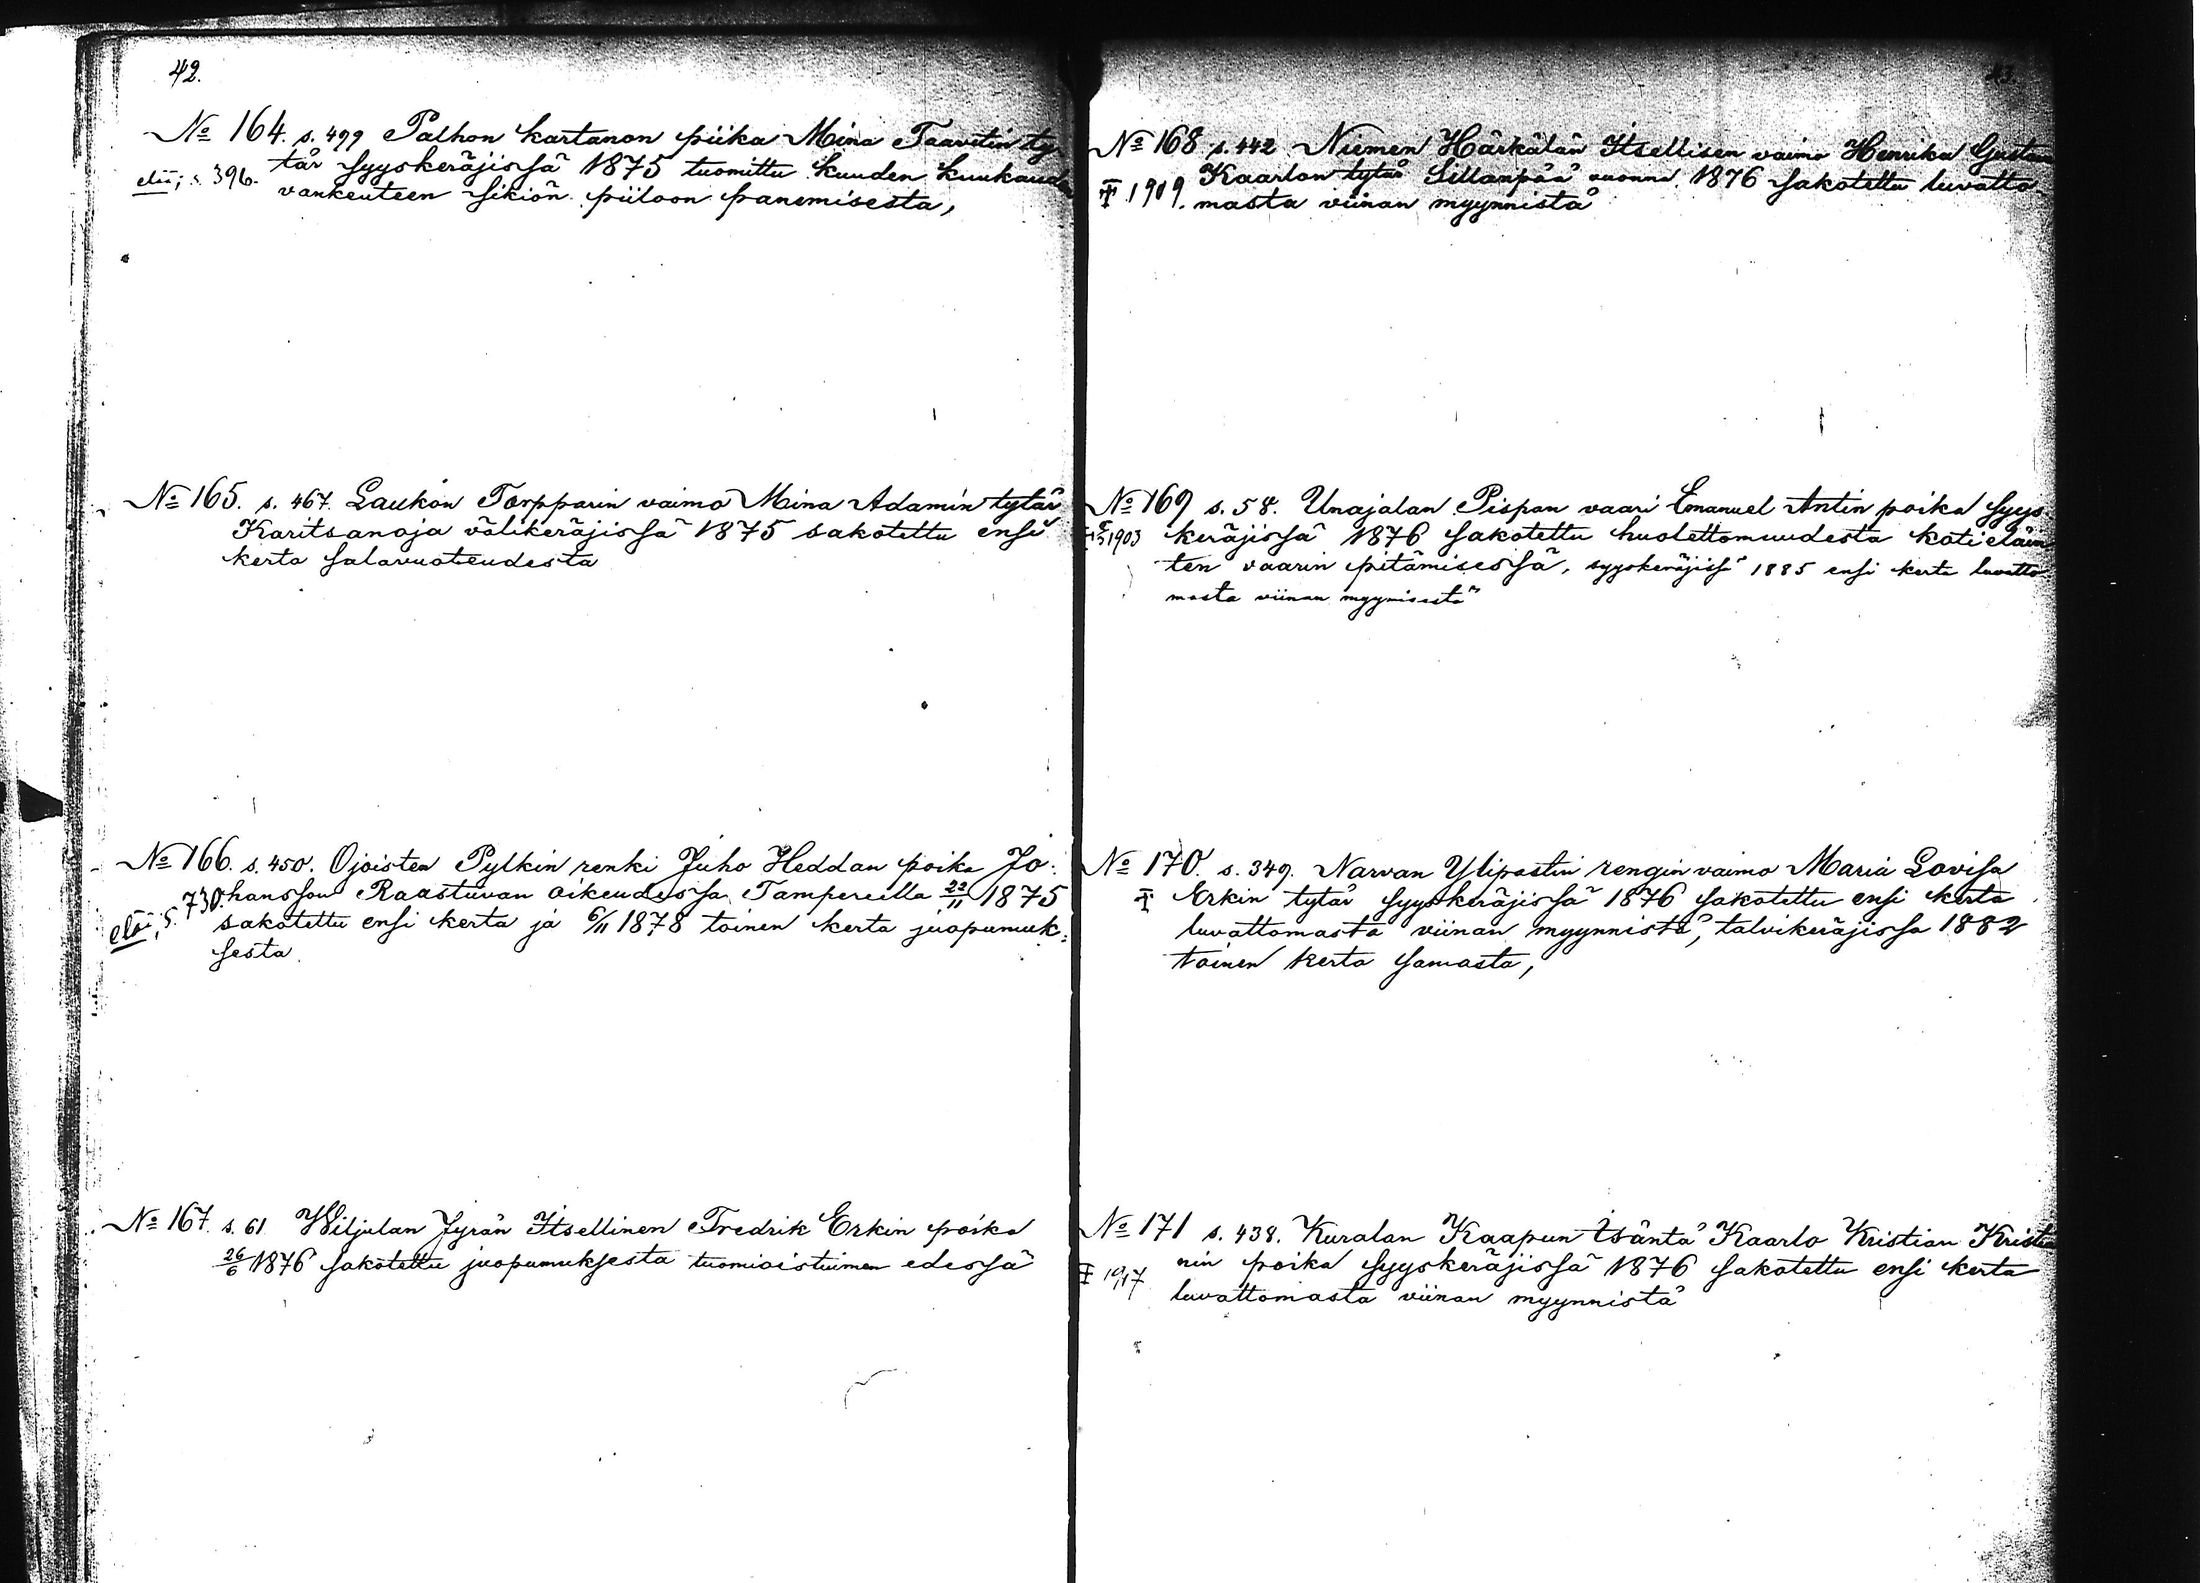 42.
№ 164. s. 499 Palhon kartanon piika Mina Taavetin ty
tär syyskeräjissä 1875 tuomittu kuuden kuukauden
elii; s. 396.
vankeuteen sikiön piiloon panemisesta,
№ 165. s. 467. Laukon Torpparin vaimo Mina Adamin tytär
Karitsanoja välikeräjissä 1875 sakotettu ensi
kerta salavuoteudesta
№ 166. s. 450. Ojoisten Pylkin renki Juho Heddan poika Jo-
hansson Raastuvan oikeudessa Tampereella 22/11 1875
elöi, s. 730.
sakotettu ensi kerta ja 6/11 1878 toinen kerta juopumuk-
sesta.
№ 167. s. 61 Wiljalan Jyrän Itsellinen Fredrik Erkin poika
26/6 1876 sakotettu juopumuksesta tuomioistuimen edessä
43.
№ 168 s. 442 Niemen Härkälän Itsellisen vaimo Henrika Gustava
Kaarlon tytär Sillanpää vuonna 1876 sakotettu luvatto
1909. masta viinan myynnistä
№ 169 s. 58. Unajalan Pispan vaari Emanuel Antin poika syys-
1903 keräjissä 1876 sakotettu huolettomuudesta koti eläin
ten vaarin pitämisessä, syyskeräjissä 1885 ensi kerta luvatto
masta viinan myymisestä
№ 170. s. 349. Narvan Ylipastin rengin vaimo Maria Lovisa
Erkin tytär syyskeräjissä 1876 sakotettu ensi kerta
luvattomasta viinan myynnistä, talvikeräjissä 1882
toinen kerta samasta,
№ 171 s. 438. Kuralan Kaapun Isäntä Kaarlo Kristian Kristia
nin poika syyskeräjissä 1876 sakotettu ensi kerta
1917
luvattomasta viinan myynnistä